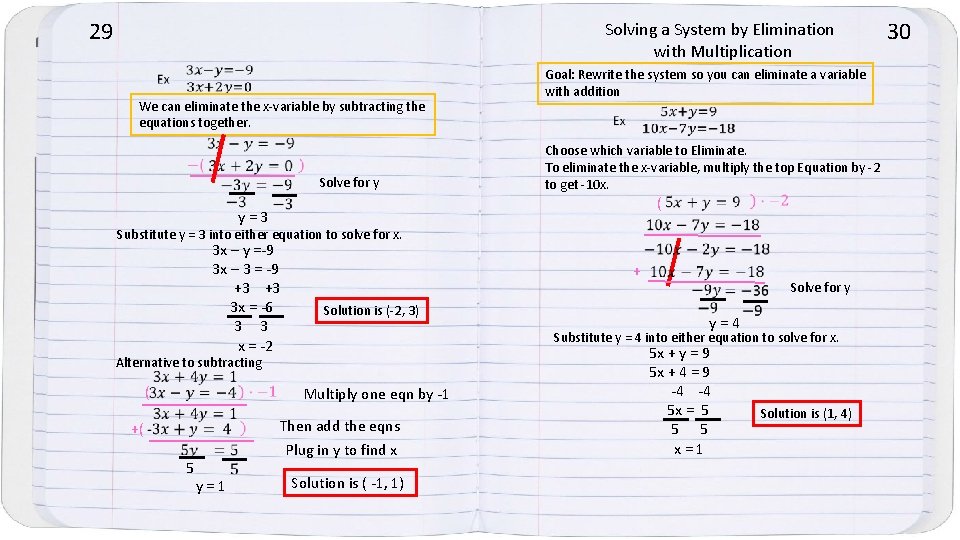 29
Ex
3x−y=−9
3x+2y=0
We can eliminate the x-variable by subtracting the
equations together.
3x − y = −9
−( 3x + 2y = 0 )
−3y = −9
−3 −3
Solve for y
y = 3
Substitute y = 3 into either equation to solve for x.
3x – y =-9
3x – 3 = -9
+3 +3
3x = -6
3 3
x = -2
Solution is (-2, 3)
Alternative to subtracting
3x + 4y = 1
(3x − y = −4) · −1
Multiply one eqn by -1
3x + 4y = 1
+( -3x + y = 4 )
Then add the eqns
5y = 5
5 5
Plug in y to find x
y = 1
Solution is ( -1, 1)
Solving a System by Elimination
with Multiplication
30
Goal: Rewrite the system so you can eliminate a variable
with addition
Ex
5x+y=9
10x−7y=−18
Choose which variable to Eliminate.
To eliminate the x-variable, multiply the top Equation by -2
to get -10x.
( 5x + y = 9 ) · −2
10x − 7y = −18
−10x − 2y = −18
+ 10x − 7y = −18
−9y = −36
−9 −9
Solve for y
y = 4
Substitute y = 4 into either equation to solve for x.
5x + y = 9
5x + 4 = 9
-4 -4
5x = 5
5 5
x = 1
Solution is (1, 4)